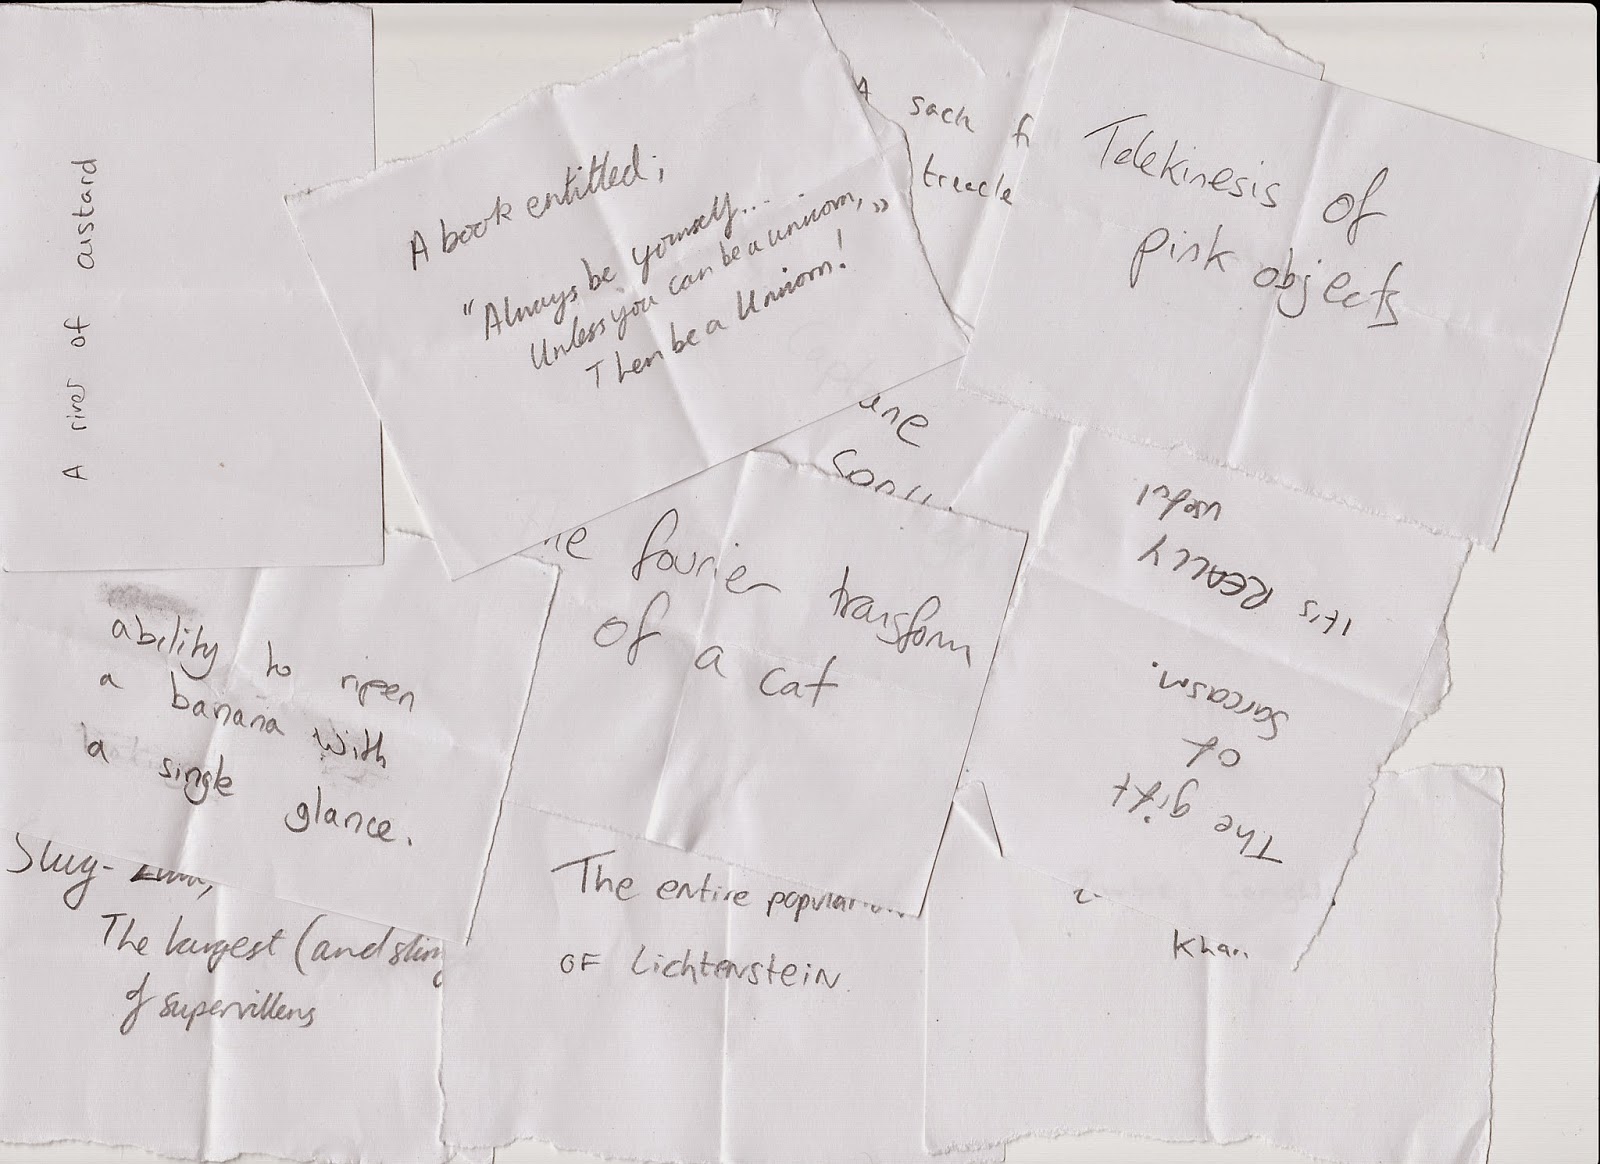 A river of custard
A book entitled;
"Always be yourself...
Unless you can be a unicorn,"
Then be a Unicorn!
A sack f
treacle
Telekinesis of
pink objects
une
The fourier transform
of a cat
It's REALLY
useful
The gift
of
sarcasm.
ability to ripen
a banana with
a single glance.
Slug-
The largest (and slim
of supervillens
The entire population
OF Lichtenstein.
Khan